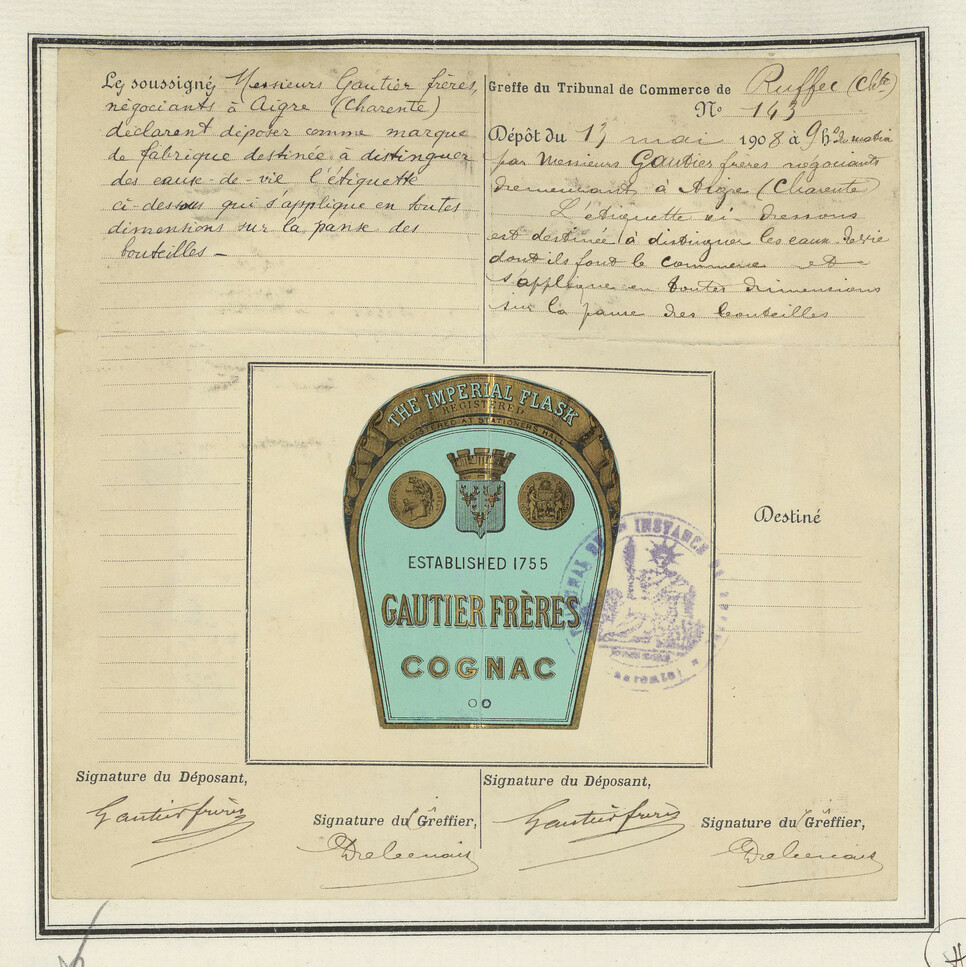 Les soussignés Messieurs Gautier frères,
négociants à Aigre (Charente)
déclarent déposer comme marque
de fabrique destinée à distinguer
des eaux-de-vie l'étiquette
ci-dessous qui s'applique en toutes
dimensions sur la panse des
bouteilles -
Greffe du Tribunal de Commerce de Ruffec (Chte)
No 143
Dépôt du 13 mai 1908 à 9 h du matin
par Messieurs Gautier frères négociants
demeurant à Aigre (Charente)
L'étiquette ci-dessous
est destinée à distinguer les eaux de vie
dont ils font le commerce et
s'applique en toutes dimensions
sur la panse des bouteilles
THE IMPERIAL FLASK
REGISTERED
REGISTERED AT STATIONERS HALL
ESTABLISHED 1755
GAUTIER FRÈRES
COGNAC
OO
INSTANCE
Destiné
Signature du Déposant,
Gautier frères
Signature du Greffier,
Signature du Déposant,
Gautier frères
Signature du Greffier,